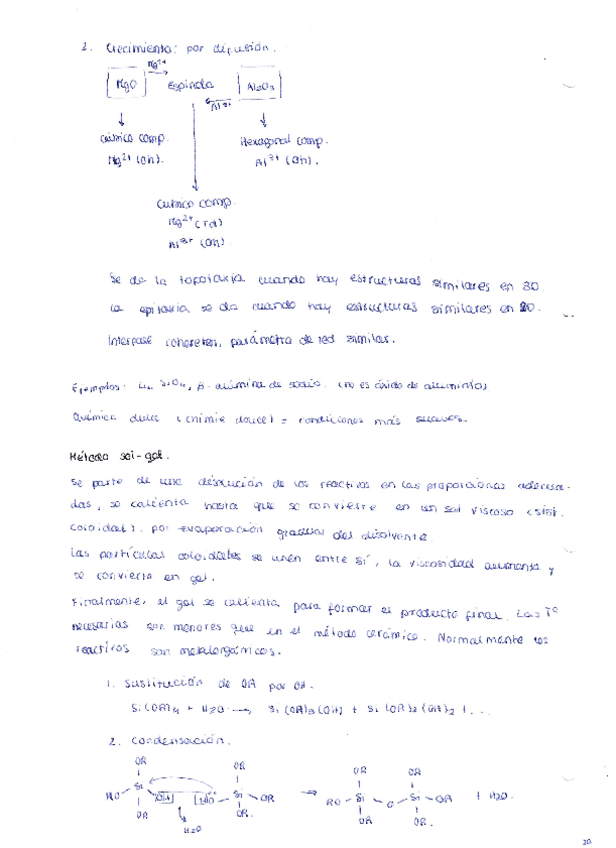 2. Crecimiento: por difusión.
Mg2+
MgO Espinela Al2O3
Al3+
Cúbico comp. Hexagonal comp.
Mg2+ (Oh). Al3+ (Oh).
Cúbico comp.
Mg2+ (Td)
Al3+ (Oh)
Se da la topotaxia cuando hay estructuras similares en 3D.
La epitaxia se da cuando hay estructuras similares en 2D.
Interfase coherentes, parámetro de red similar.
Ejemplos: SiO4, β-alúmina de sodio. (no es óxido de aluminio)
Química dulce (chimie douce) = condiciones más suaves.
Método sol-gel.
Se parte de una disolución de los reactivos en las proporciones adecua-
das, se calienta hasta que se convierte en un sol viscoso (sist.
coloidal). por evaporación gradual del disolvente.
Las partículas coloidales se unen entre sí, la viscosidad aumenta y
se convierte en gel.
Finalmente, el gel se calienta para formar el producto final. Las Tª
necesarias son menores que en el método cerámico. Normalmente los
reactivos son metalorgánicos.
1. Sustitución de OR por OH.
Si(OR)4 + H2O → Si(OR)3(OH) + Si(OR)2(OH)2 + ...
2. Condensación.
OR OR OR OR
HO Si OH HO Si OR → RO Si O Si OR + H2O.
OR OR OR OR.
H2O
20